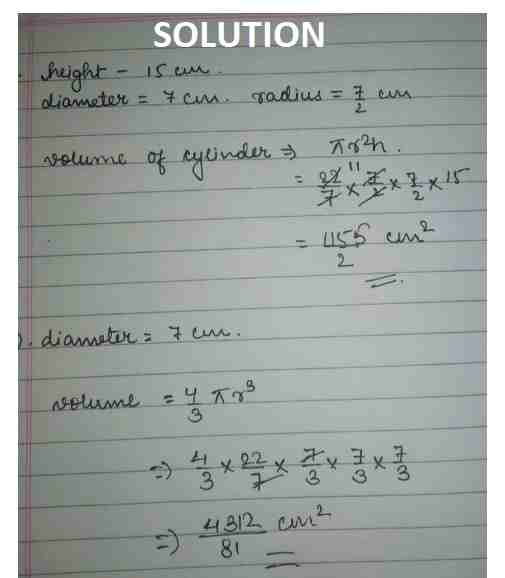 SOLUTION
. height - 15 cm.
diameter = 7 cm. radius = 7/2 cm
volume of cylinder ⇒ πr²h.
= 22/7 11 × 7/2 × 7/2 × 15
= 1155/2 cm²
2. diameter = 7 cm.
volume = 4/3 πr³
⇒ 4/3 × 22/7 × 7/3 × 7/3 × 7/3
⇒ 4312/81 cm²